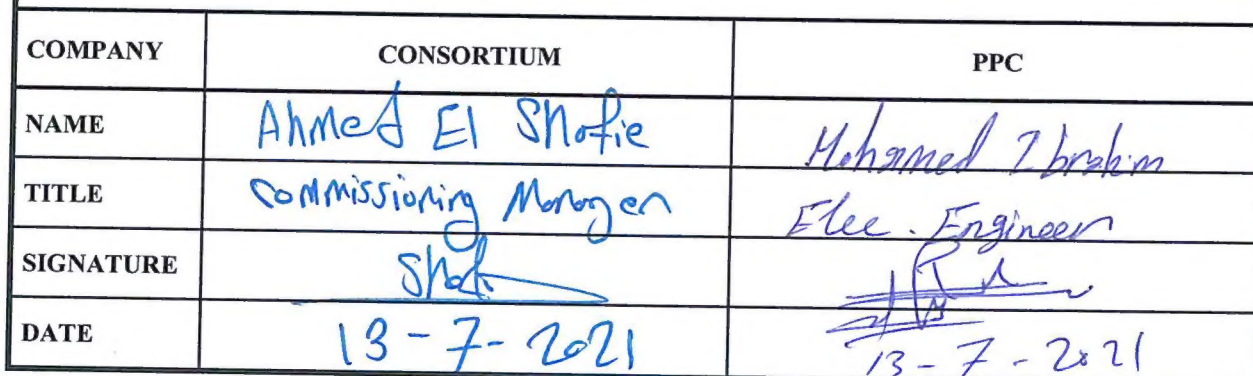 COMPANY CONSORTIUM PPC
NAME Ahmed El Shafie Mohamed Ibrahim
TITLE Commissioning Manager Elec. Engineer
SIGNATURE
DATE 13-7-2021 13-7-2021